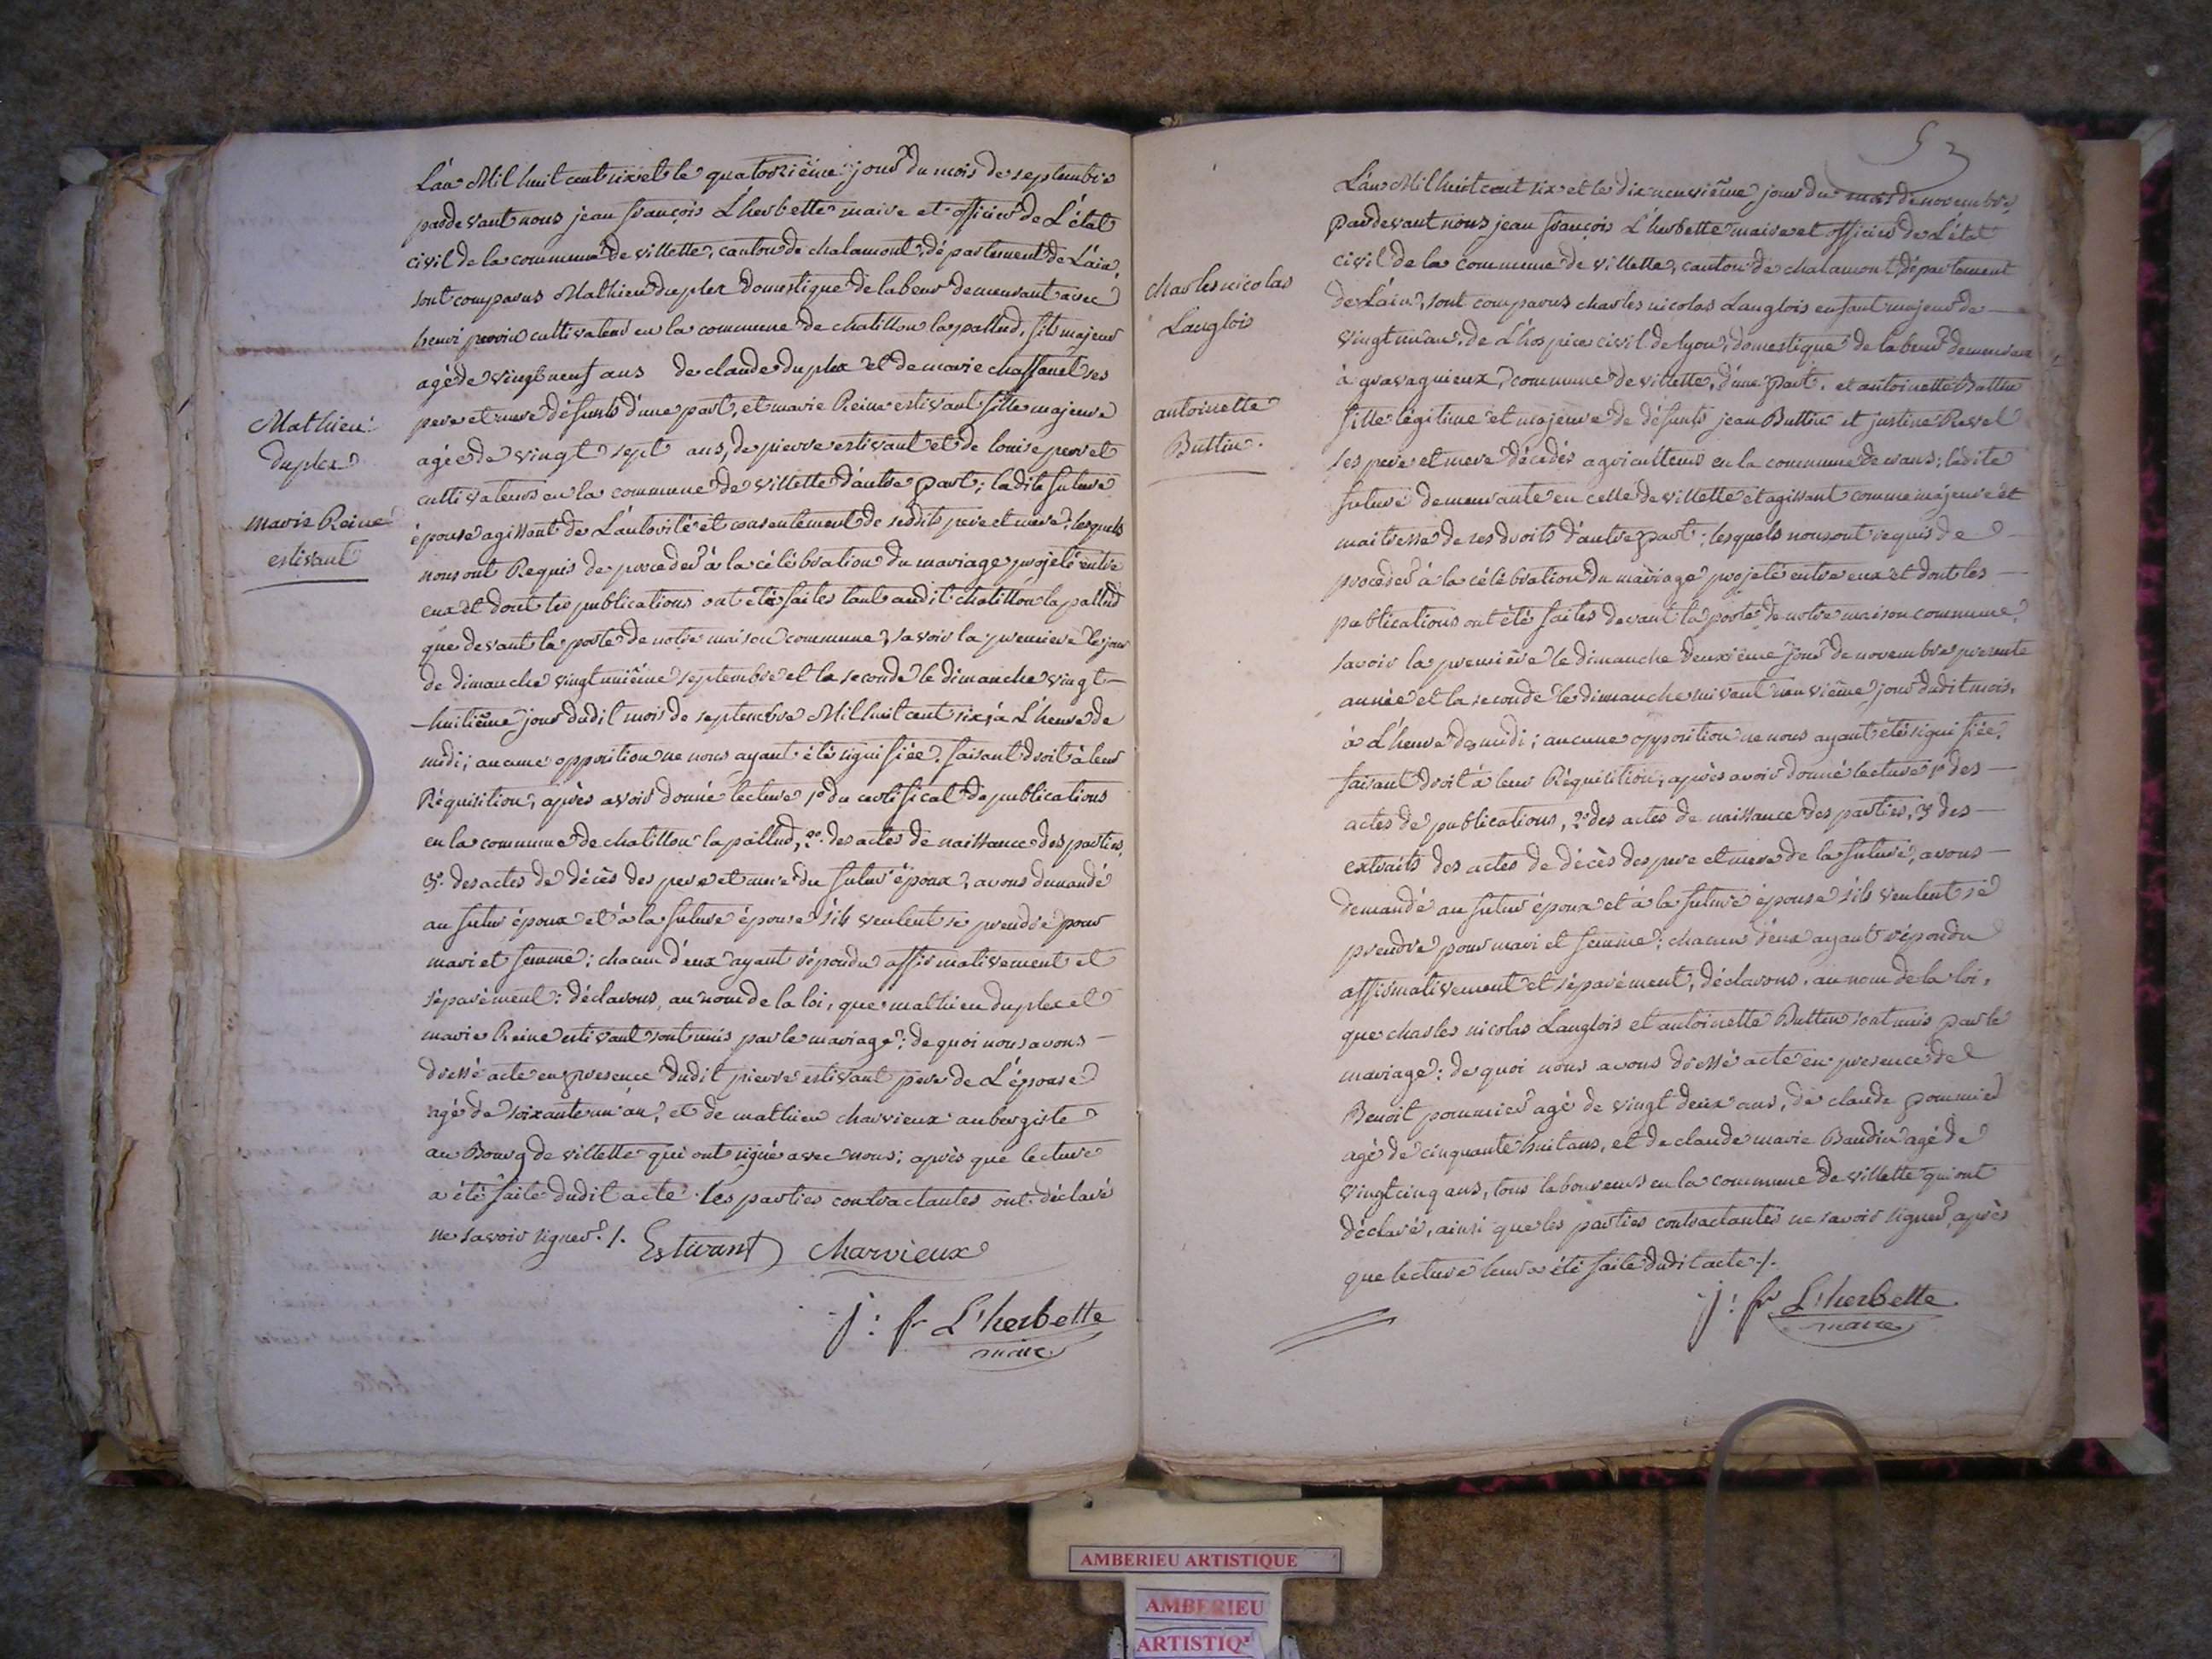 L'an Mil huit cent six et le quatorzième jour du mois de septembre
pardevant nous jean françois L'herbette maire et officier de L'état
civil de la commune de villette, canton de chalamont, département de L'ain,
sont comparus Mathieu duplex domestique de labeur demeurant avec
henri cultivateur en la commune de chatillon lapallud, fils majeur
agé de vingt neuf ans de claude duplex et de marie chaffanel ses
pere et mere défunts d'une part, et marie Reine estivant fille majeure
agée de vingt sept ans, de pierre estivant et de louise perret
cultivateurs en la commune de villette d'autre part; ladite future
épouse agissant de L'autorité et consentement de sesdits pere et mere; lesquels
nous ont Requis de proceder à la célébration du mariage projeté entre
eux et dont les publications ont été faites tant audit chatillon lapallud
que devant la porte de notre maison commune, savoir la premiere le jour
de dimanche vingt unième septembre et la seconde le dimanche vingt-
-huitième jour dudit mois de septembre Mil huit cent six, à L'heure de
midi; aucune opposition ne nous ayant été signifiée; faisant droit à leur
Réquisition, après avoir donné lecture 1º du certificat de publications
en la commune de chatillon lapallud, 2º des actes de naissance des parties,
3º des actes de décès des pere et mere du futur époux, avons demandé
au futur époux et à la future épouse s'ils veulent se prendre pour
mari et femme; chacun d'eux ayant répondu affirmativement et
séparément: déclarons, au nom de la loi, que mathieu duplex et
marie Reine estivant sont unis par le mariage: de quoi nous avons
dressé acte en presence dudit pierre estivant pere de L'épouse
agé de soixante un an, et de mathieu charvieux aubergiste
au Bourg de villette qui ont signé avec nous; après que lecture
a été faite dudit acte. Les parties contractantes ont déclaré
ne savoir signer ./. Estivant charvieux
j: fr L'herbette
maire
Mathieu
duplex
marie Reine
estivant
53
L'an Mil huit cent six et le dix neuvième jour du mois de novembre,
Pardevant nous jean françois L'herbette maire et officier de L'état
civil de la commune de villette, canton de chalamont, département
de L'ain, sont comparus charles nicolas Langlois enfant majeur de
vingt un an, de L'hospice civil de lyon, domestique de labeur demeurant
à gravagnieux, commune de villette, d'une part. et antoinette Buttin
fille légitime et majeure de défunts jean Buttin et justine Revel
ses pere et mere décédés agriculteurs en la commune de ; ladite
future demeurante en celle de villette et agissant comme majeure et
maitresse de ses droits d'autre part: lesquels nous ont requis de
procéder à la célébration du mariage projeté entre eux et dont les
publications ont été faites devant la porte de notre maison commune,
savoir la première le dimanche deuxième jour de novembre presente
année et la seconde le dimanche suivant neuvième jour dudit mois,
à L'heure de midi; aucune opposition ne nous ayant été signifiée,
faisant droit à leur Réquisition, après avoir donné lecture 1º des
actes de publications, 2º des actes de naissance des parties, 3º des
extraits des actes de décès des pere et mere de la future, avons
demandé au futur époux et à la future épouse s'ils veulent se
prendre pour mari et femme; chacun d'eux ayant répondu
affirmativement et séparément, déclarons, au nom de la loi,
que charles nicolas Langlois et antoinette Buttin sont unis par le
mariage: de quoi nous avons dressé acte en presence de
Benoit pommier agé de vingt deux ans, de claude pommier
agé de cinquante huit ans, et de claude marie Baudin agé de
vingt cinq ans, tous laboureurs en la commune de villette qui ont
déclaré, ainsi que les parties contractantes ne savoir signer, après
que lecture leur a été faite dudit acte ./.
j: fr L'herbette
maire
charles nicolas
Langlois
antoinette
Buttin.
AMBERIEU ARTISTIQUE
AMBERIEU
ARTISTIQ